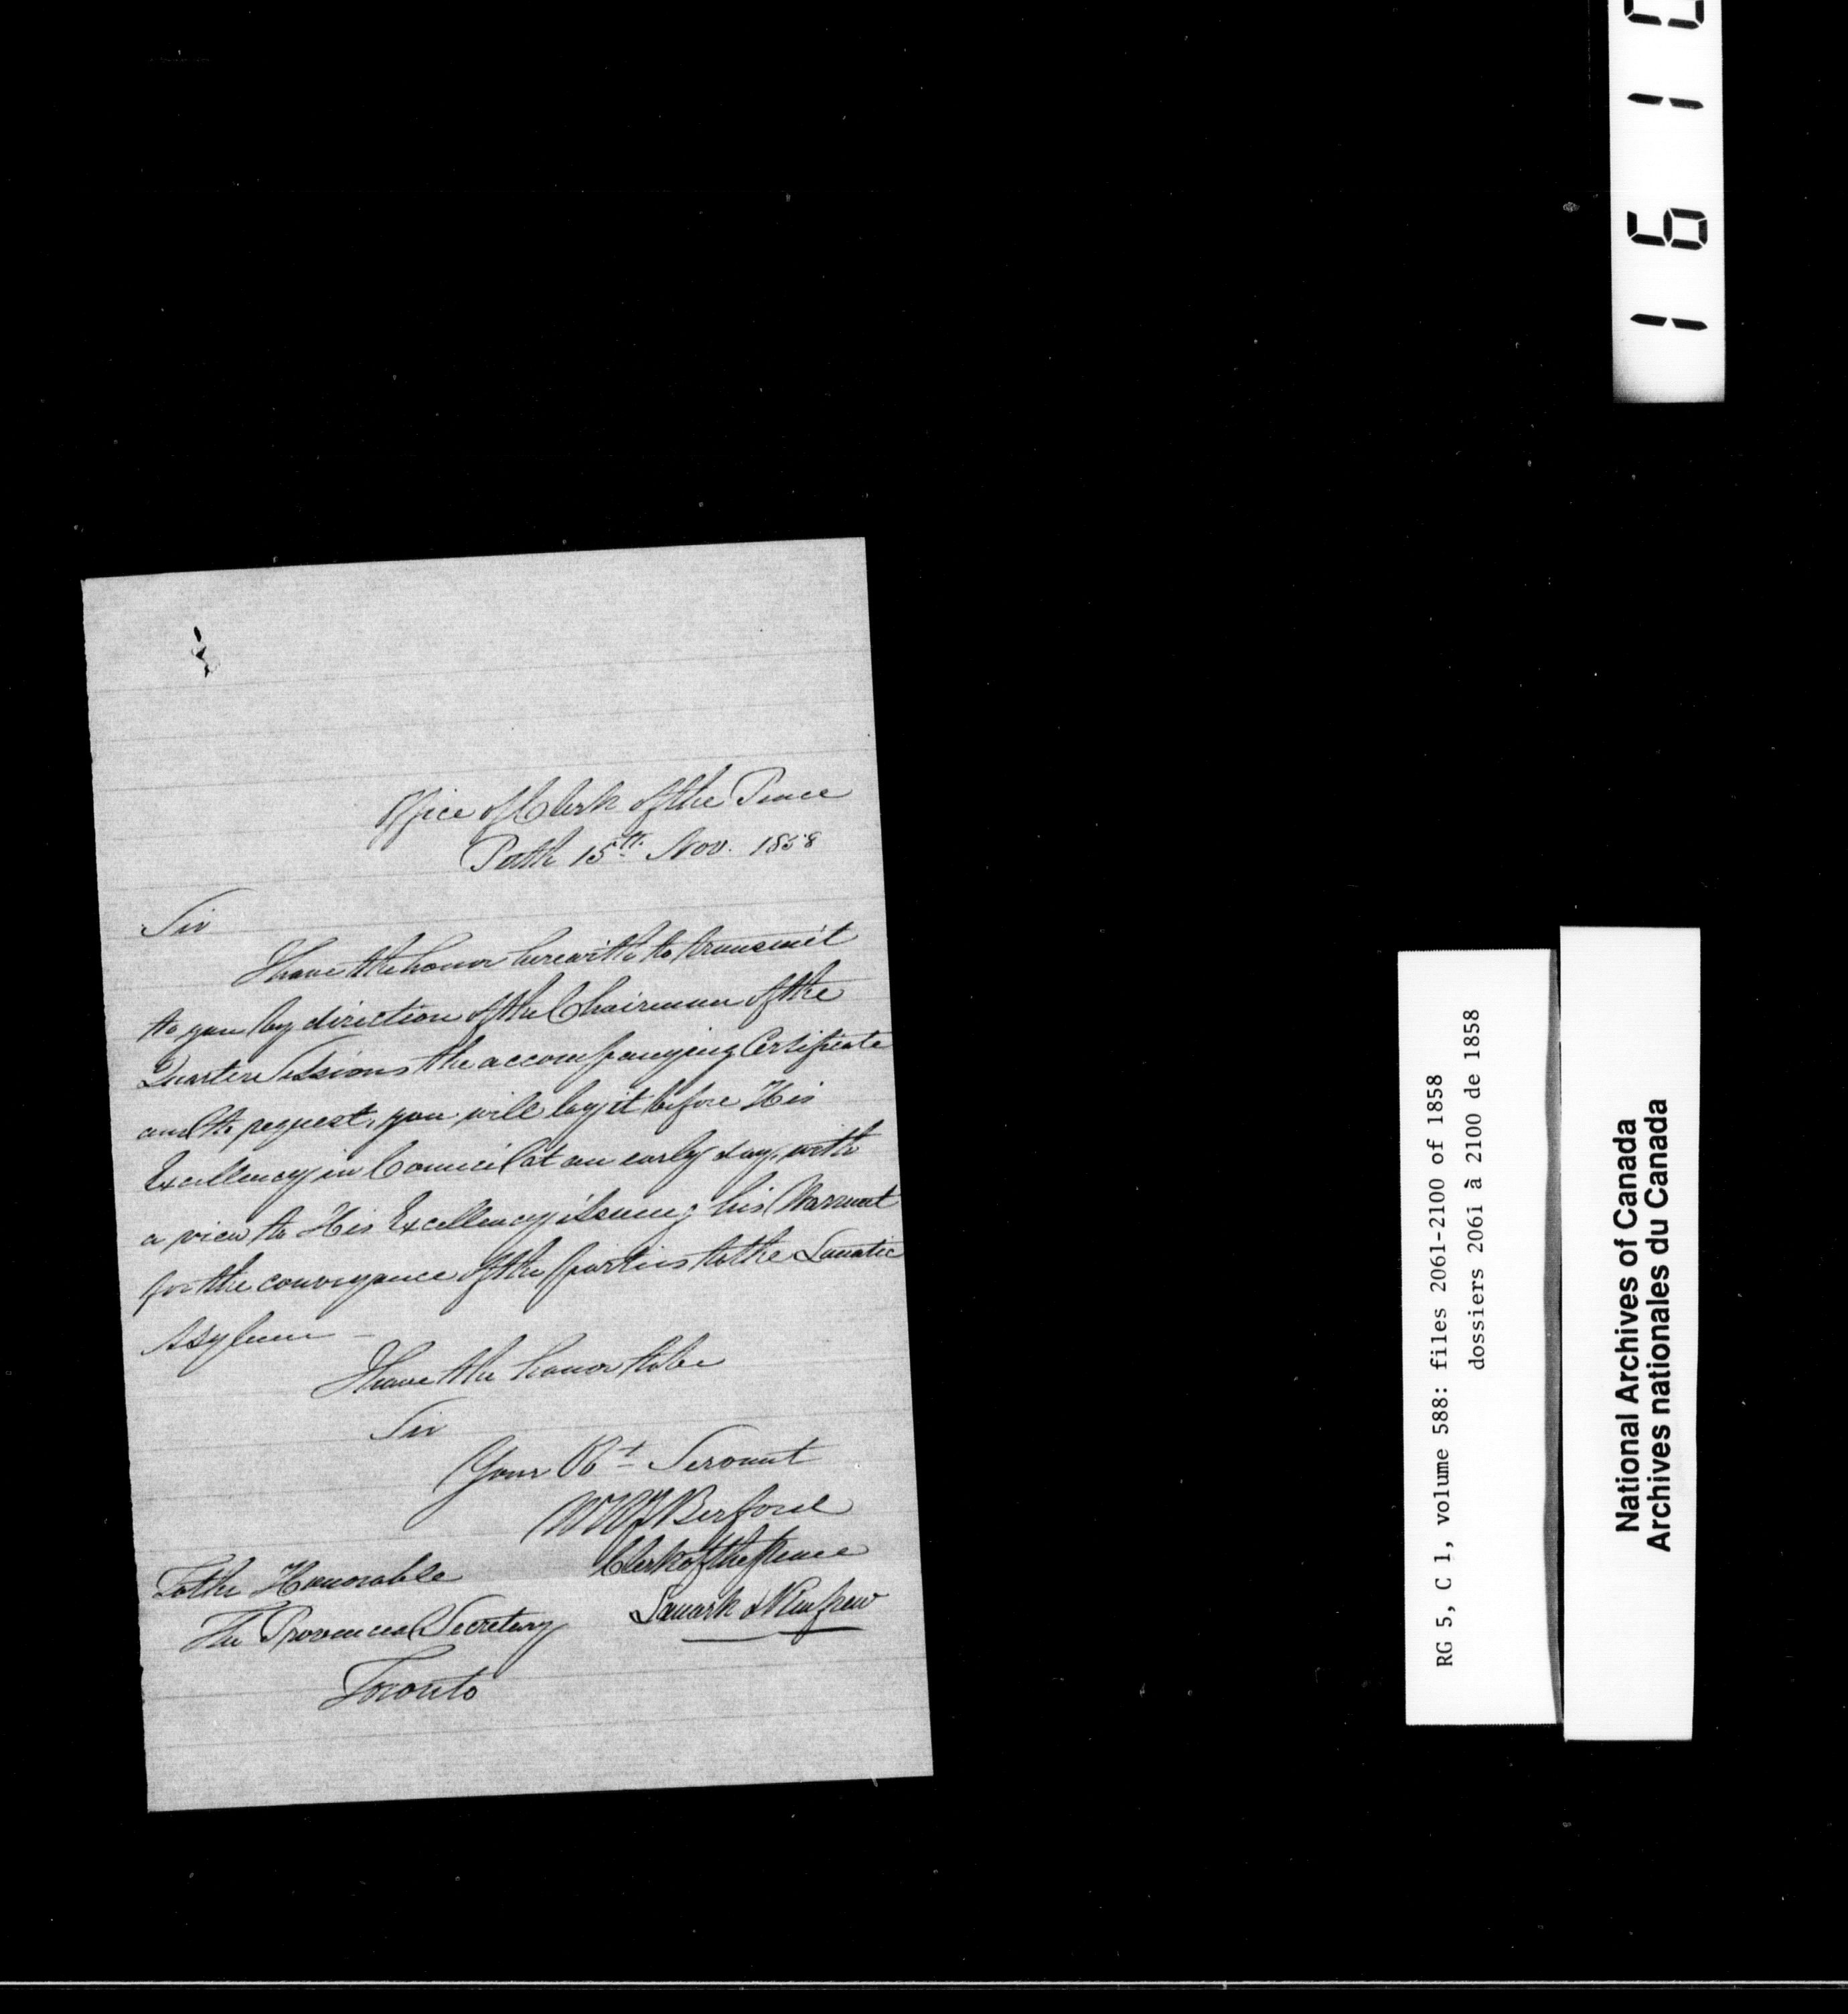 Office of Clerk of the Peace
Perth 15th Nov. 1858
Sir
I have the honor herewith to transmit
to you by direction of the Chairman of the
Quarter Sessions the accompanying Certificate
and to request, you will lay it before His
Excellency in Council at an early day, with
a view to His Excellency issuing his Warrant
for the conveyance of the parties to the Lunatic
Asylum –
I have the honor to be
Sir
Your Obt Servant
Berford
Clerk of the Peace
Lanark & Renfrew
To the Honorable
The Provincial Secretary
Toronto
RG 5, C 1, volume 588: files 2061-2100 of 1858
dossiers 2061 à 2100 de 1858
National Archives of Canada
Archives nationales du Canada
1 6 1